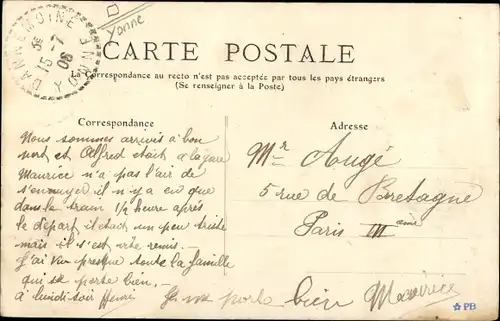 Yonne
CARTE POSTALE
La Correspondance au recto n'est pas acceptée par tous les pays étrangers
(Se renseigner à la Poste)
Correspondance
Adresse
Nous sommes arrivés à bon
port et Alfred était à la gare
Maurice n'a pas l'air de
s'ennuyer il n'y a eu que
dans le train 1/2 heure après
le départ il était un peu triste
mais il s'est vite remis.
J'ai vu presque toute la famille
qui se porte bien.
à lundi soir Henri
Je me porte bien Maurice
Mr Augé
5 rue de Bretagne
Paris III ème
15 -7
08
YONNE
PB